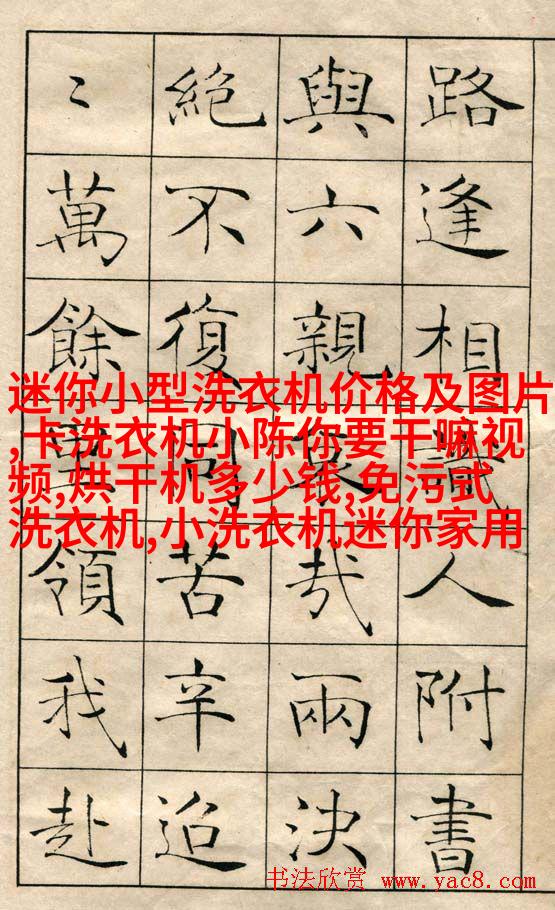 路逢相識人附書
與六親哀哉兩決
絕不復同苦辛迢
〻萬餘里領我赴
迷你小型洗衣机价格及图片
,卡洗衣机小陈你要干嘛视
频,烘干机多少钱,免污式
洗衣机,小洗衣机迷你家用
书法欣赏 www.yac8.com